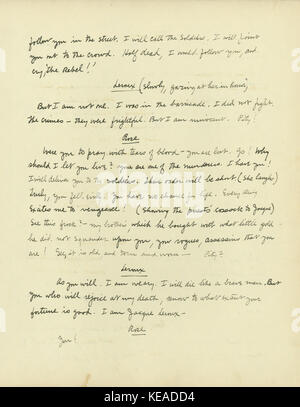 follow you in the street. I will call the soldiers. I will point
you out to the crowd. Half dead, I would follow you, and
cry, 'the Rebel!'
Leroux (slowly, gazing at her in horror)
But I am not one. I was in the barricade. I did not fight.
The crimes - they were frightful. But I am innocent. Pity!
Rose
Were you to pray with tears of blood - you are lost. Go! Why
should I let you live? You are one of the murderers. I hate you!
I will deliver you to the soldiers. They will be short. (She laughs)
Truly, you fell. You have no chance for life. Everything
excites me to vengeance! (Showing the cassock to Jacque)
See this frock - my brother's which he bought with what little gold
he did not squander upon you, you rogues assassins that you
are! Say it is old and torn and worn - Pity?
Leroux
As you will. I am weary. I will die like a brave man. But
you who will rejoice at my death, know to what extent your
fortune is good. I am Jacque Leroux -
Rose
You!
alamy
KEADD4